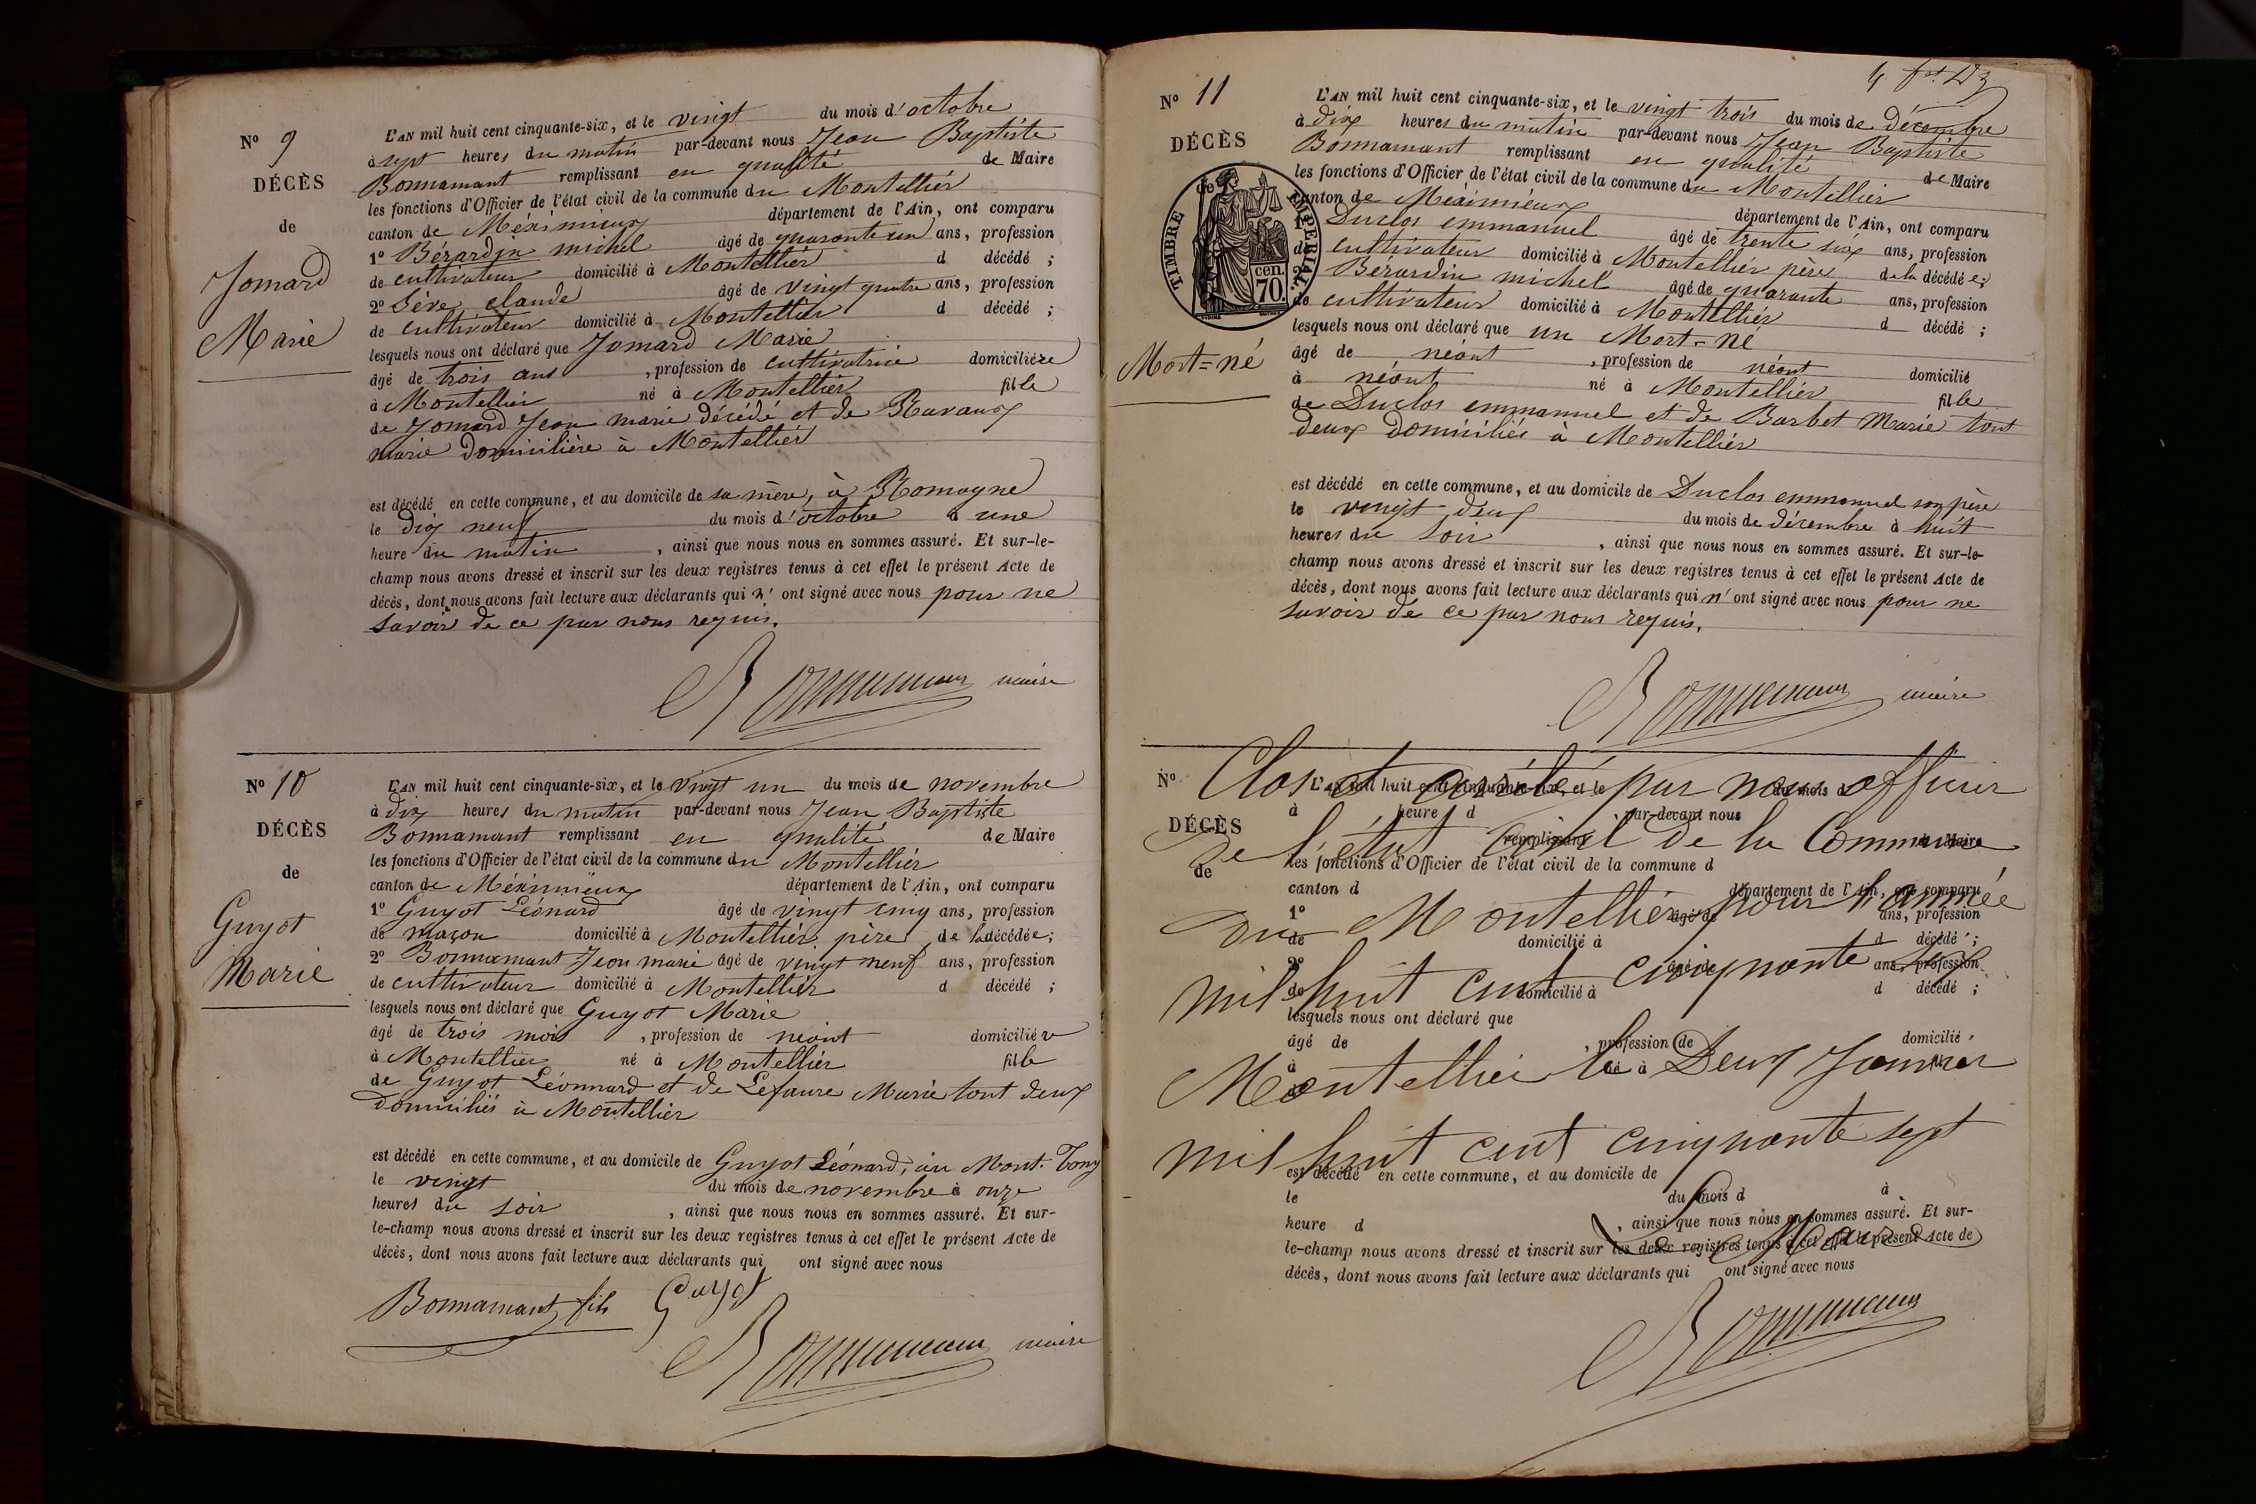 N° 9
DÉCÈS
de
Jomard
Marie
L'AN mil huit cent cinquante-six, et le vingt du mois d'octobre
à sept heures du matin par-devant nous Jean Baptiste
Bonnamant remplissant en qualité de Maire
les fonctions d'Officier de l'état civil de la commune du Montellier
canton de Méximieux département de l'Ain, ont comparu
1° Bérardin michel âgé de quarante un ans, profession
de cultivateur domicilié à Montellier d décédé ;
2° Sève claude âgé de vingt quatre ans, profession
de cultivateur domicilié à Montellier d décédé ;
lesquels nous ont déclaré que Jomard Marie
âgé de trois ans , profession de cultivatrice domicilière
à Montellier né à Montellier fille
de Jomard Jean marie décédé et de Ravaux
marie domicilière à Montellier
est décédé en cette commune, et au domicile de sa mère, à Romagne
le dix neuf du mois d'octobre à une
heure du matin , ainsi que nous nous en sommes assuré. Et sur-le-
champ nous avons dressé et inscrit sur les deux registres tenus à cet effet le présent Acte de
décès, dont nous avons fait lecture aux déclarants qui n'ont signé avec nous pour ne
savoir de ce par nous requis.
Bonnamant maire
N° 10
DÉCÈS
de
Guyot
Marie
L'AN mil huit cent cinquante-six, et le vingt un du mois de novembre
à dix heures du matin par-devant nous Jean Baptiste
Bonnamant remplissant en qualité de Maire
les fonctions d'Officier de l'état civil de la commune du Montellier
canton de Méximieux département de l'Ain, ont comparu
1° Guyot Léonard âgé de vingt cinq ans, profession
de maçon domicilié à Montellier, père de la décédée ;
2° Bonnamant Jean marie âgé de vingt neuf ans, profession
de cultivateur domicilié à Montellier d décédé ;
lesquels nous ont déclaré que Guyot Marie
âgé de trois mois , profession de néant domicilié
à Montellier né à Montellier fille
de Guyot Léonnard et de Lefaure Marie tout deux
domiciliés à Montellier
est décédé en cette commune, et au domicile de Guyot Léonard, au Mont-Tony
le vingt du mois de novembre à onze
heures du soir , ainsi que nous nous en sommes assuré. Et sur-
le-champ nous avons dressé et inscrit sur les deux registres tenus à cet effet le présent Acte de
décès, dont nous avons fait lecture aux déclarants qui ont signé avec nous
Bonnamant fils Guyot
Bonnamant maire
N° 11
DÉCÈS
de
TIMBRE IMPERIAL.
70. cen.
Mort=né
L'AN mil huit cent cinquante-six, et le vingt trois du mois de décembre
à dix heures du matin par-devant nous Jean Baptiste
Bonnamant remplissant en qualité de Maire
les fonctions d'Officier de l'état civil de la commune du Montellier
canton de Méximieux département de l'Ain, ont comparu
1° Duclos emmanuel âgé de trente six ans, profession
de cultivateur domicilié à Montellier père de la décédée ;
2° Bérardin michel âgé de quarante ans, profession
de cultivateur domicilié à Montellier d décédé ;
lesquels nous ont déclaré que un Mort=né
âgé de néant , profession de néant domicilié
à néant né à Montellier fille
de Duclos emmanuel et de Barbet Marie tout
deux domiciliés à Montellier
est décédé en cette commune, et au domicile de Duclos emmanuel son père
le vingt deux du mois de décembre à huit
heures du soir , ainsi que nous nous en sommes assuré. Et sur-le-
champ nous avons dressé et inscrit sur les deux registres tenus à cet effet le présent Acte de
décès, dont nous avons fait lecture aux déclarants qui n'ont signé avec nous pour ne
savoir de ce par nous requis.
Bonnamant maire
N°
DÉCÈS
de
L'AN mil huit cent cinquante-six, et le du mois d
à heure d par-devant nous
remplissant de Maire
les fonctions d'Officier de l'état civil de la commune d
canton d département de l'Ain, ont comparu
1° âgé de ans, profession
de domicilié à d décédé ;
2° âgé de ans, profession
de domicilié à d décédé ;
lesquels nous ont déclaré que
âgé de , profession de domicilié
à né à fil
de
est décédé en cette commune, et au domicile de
le du mois d à
heure d , ainsi que nous nous en sommes assuré. Et sur-
le-champ nous avons dressé et inscrit sur les deux registres tenus à cet effet le présent Acte de
décès, dont nous avons fait lecture aux déclarants qui ont signé avec nous
Clos et arrêté par nous officier
de l'état civil de la Commune
du Montellier, pour l'année
mil huit cent cinquante six
Montellier le Deux Janvier
mil huit cent cinquante sept
Le Maire
Bonnamant